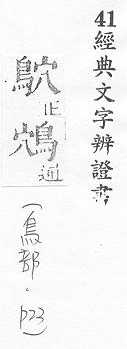 41經典文字辨證書
鴪正
鴥通
(鳥部·p23)